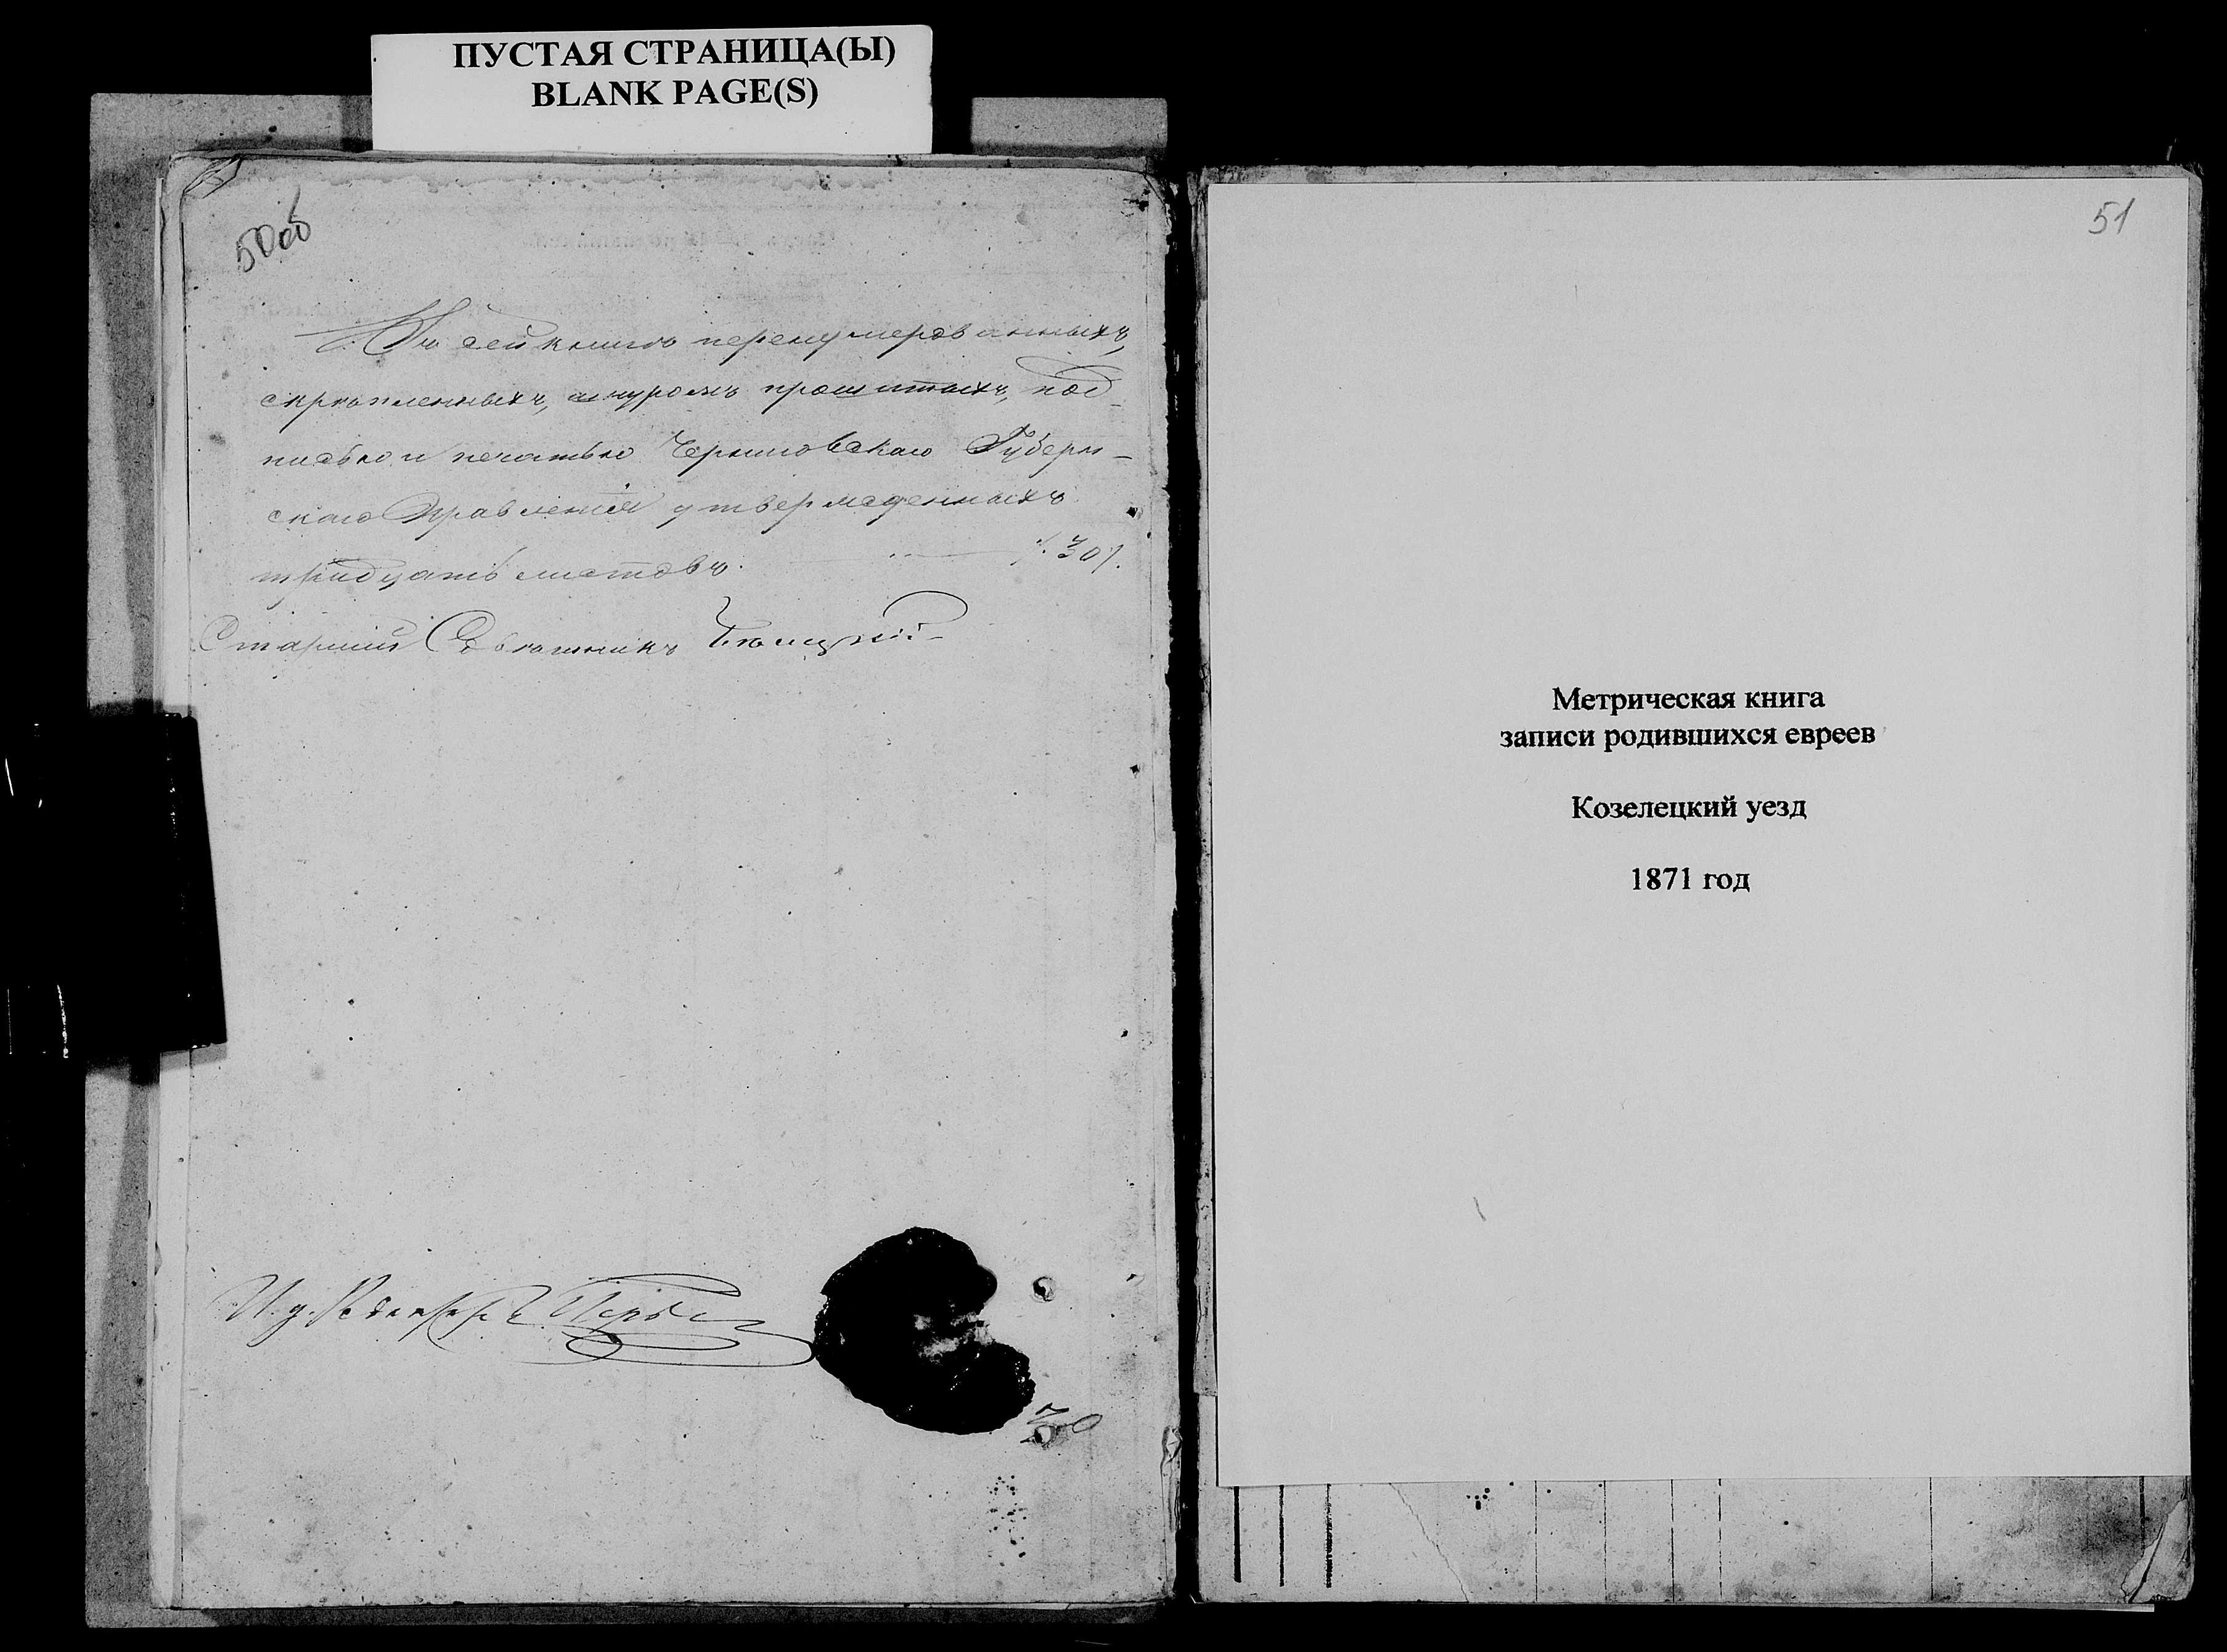 ПУСТАЯ СТРАНИЦА(Ы)
BLANK PAGE(S)
50об
Въ сей книгѣ перенумерованныхъ,
скрѣпленныхъ, шнуромъ прошитыхъ, под-
писью и печатью Черниговскаго Губерн-
скаго Правленія утвержденныхъ
тридцать листовъ. ./. 30 /.
Старшій Совѣтникъ
И. д.
30
51
Метрическая книга
записи родившихся евреев
Козелецкий уезд
1871 год